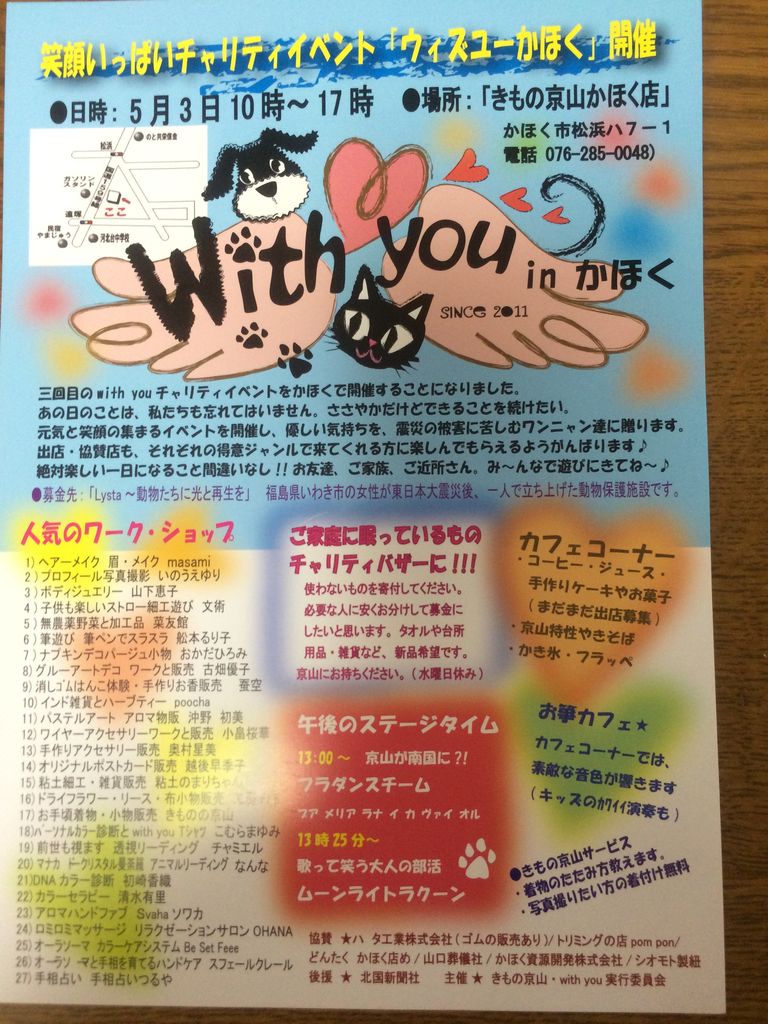 笑顔いっぱいチャリティイベント「ウィズユーかほく」開催
●日時：5月3日10時～17時 ●場所：「きもの京山かほく店」
かほく市松浜ハ7－1
電話 076-285-0048)
のと共栄信金
松浜
ガソリンスタンド
国道159号線
ここ
遠塚
民宿やまじゅう
河北台中学校
With you in かほく
SINCE 2011
三回目のwith youチャリティイベントをかほくで開催することになりました。
あの日のことは、私たちも忘れてはいません。ささやかだけどできることを続けたい。
元気と笑顔の集まるイベントを開催し、優しい気持ちを、震災の被害に苦しむワンニャン達に贈ります。
出店・協賛店も、それぞれの得意ジャンルで来てくれる方に楽しんでもらえるようがんばります♪
絶対楽しい一日になること間違いなし!!お友達、ご家族、ご近所さん。み～んなで遊びにきてね～♪
●募金先：「Lysta～動物たちに光と再生を」 福島県いわき市の女性が東日本大震災後、一人で立ち上げた動物保護施設です。
人気のワーク・ショップ
1)ヘアーメイク 眉・メイク masami
2)プロフィール写真撮影 いのうえゆり
3)ボディジュエリー 山下恵子
4)子供も楽しいストロー細工遊び 文術
5)無農薬野菜と加工品 菜友館
6)筆遊び 筆ペンでスラスラ 舩本るり子
7)ナプキンデコパージュ小物 おかだひろみ
8)グルーアートデコ ワークと販売 古畑優子
9)消しゴムはんこ体験・手作りお香販売 蚕空
10)インド雑貨とハーブティー poocha
11)パステルアート アロマ物販 沖野 初美
12)ワイヤーアクセサリーワークと販売 小畠桜華
13)手作りアクセサリー販売 奥村星美
14)オリジナルポストカード販売 越後早季子
15)粘土細工・雑貨販売 粘土のまりちゃん
16)ドライフラワー・リース・布小物販売
17)お手頃着物・小物販売 きものの京山
18)パーソナルカラー診断とwith you Tシャツ こむらまゆみ
19)前世も視ます 透視リーディング チャミエル
20)マナカ ドークリスタル曼荼羅 アニマルリーディング なんな
21)DNAカラー診断 初崎香織
22)カラーセラピー 清水有里
23)アロマハンドファブ Svaha ソワカ
24)ロミロミマッサージ リラクゼーションサロン OHANA
25)オーラソーマ カラーケアシステム Be Set Feee
26)オーラソ ーマと手相を育てるハンドケア スフェールクレール
27)手相占い 手相占いつるや
ご家庭に眠っているもの
チャリティバザーに!!!
使わないものを寄付してください。
必要な人に安くお分けして募金に
したいと思います。タオルや台所
用品・雑貨など、新品希望です。
京山にお持ちください。(水曜日休み)
カフェコーナー
・コーヒー・ジュース・
手作りケーキやお菓子
(まだまだ出店募集)
・京山特性やきそば
・かき氷・フラッペ
午後のステージタイム
13:00～ 京山が南国に?!
フラダンスチーム
プア メリア ラナ イ カ ヴァイ オル
13時25分～
歌って笑う大人の部活
ムーンライトラクーン
お箏カフェ★
カフェコーナーでは、
素敵な音色が響きます
(キッズのカワイイ演奏も)
●きもの京山サービス
・着物のたたみ方教えます。
・写真撮りたい方の着付け無料
協賛 ★ハ タ工業株式会社(ゴムの販売あり)/トリミングの店 pom pon/
どんたく かほく店め/山口葬儀社/かほく資源開発株式会社/シオモト製紐
後援 ★ 北国新聞社 主催★ きもの京山・with you 実行委員会